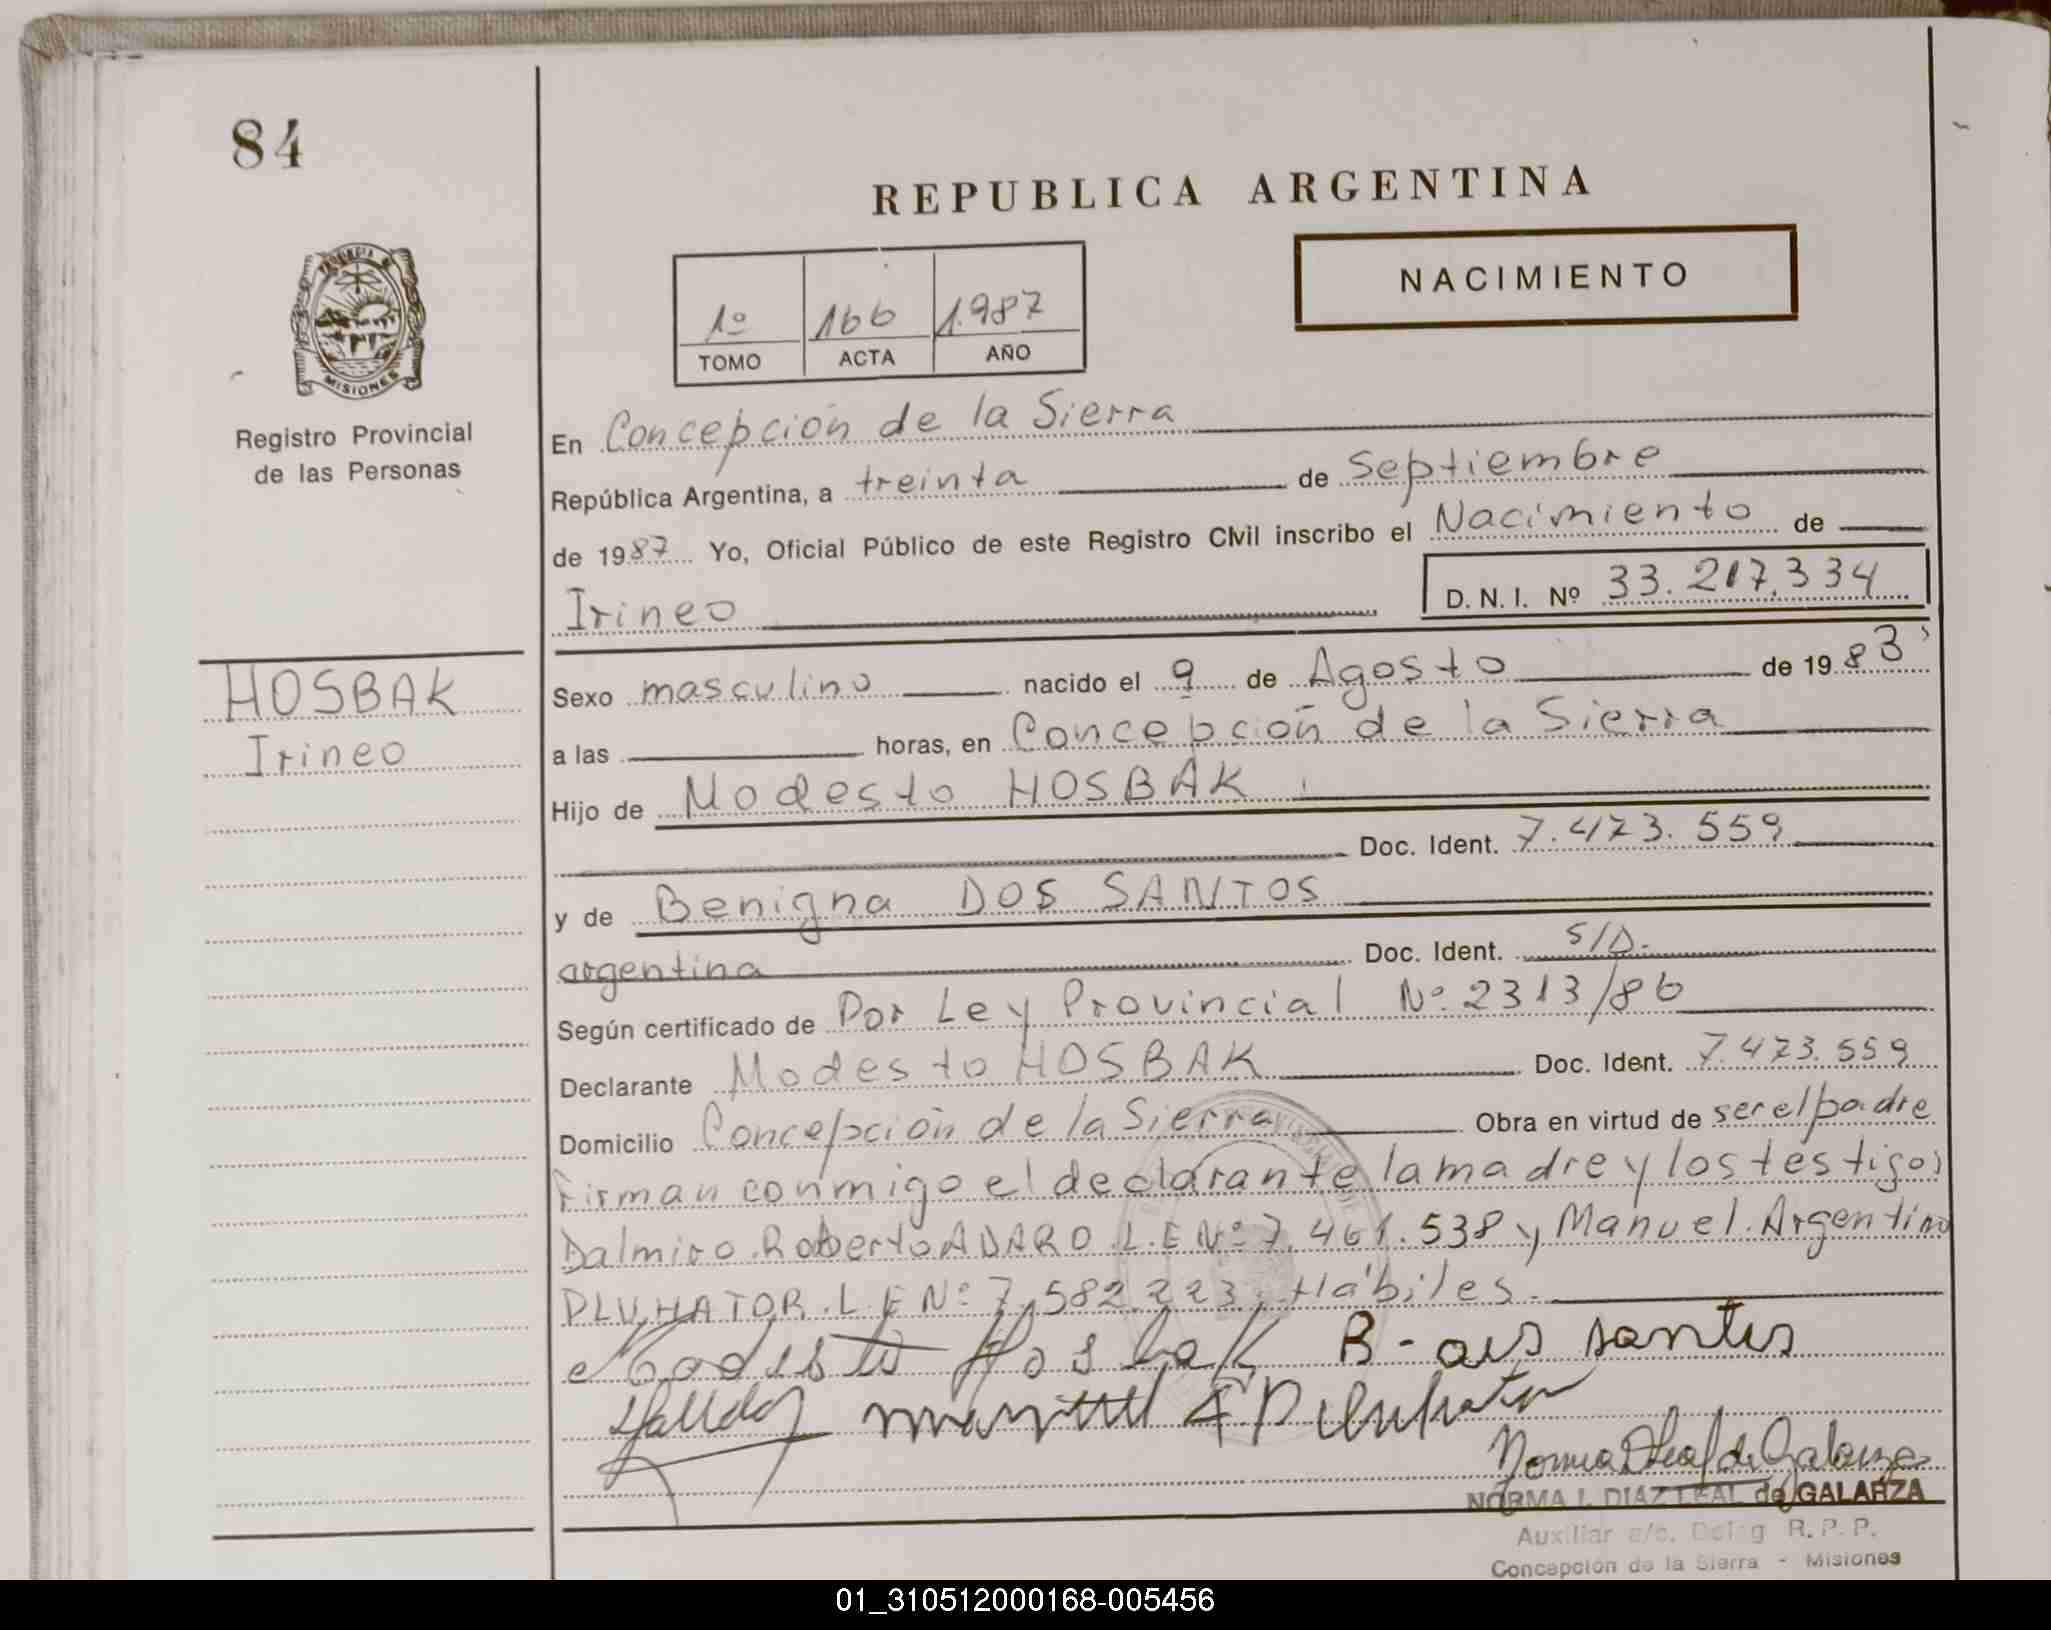 84
REPUBLICA ARGENTINA
NACIMIENTO
1º 166 1.987
TOMO ACTA AÑO
PROVINCIA DE
MISIONES
Registro Provincial
de las Personas
En Concepción de la Sierra
República Argentina, a treinta de Septiembre
de 1987 Yo, Oficial Público de este Registro Civil inscribo el Nacimiento de
Irineo D. N. I. Nº 33.217.334
HOSBAK
Irineo
Sexo masculino nacido el 9 de Agosto de 1983
a las horas, en Concepción de la Sierra
Hijo de Modesto HOSBAK
Doc. Ident. 7.473.559
y de Benigna DOS SANTOS
argentina Doc. Ident. S/D.
Según certificado de Por Ley Provincial Nº 2313/86
Declarante Modesto HOSBAK Doc. Ident. 7.473.559
Domicilio Concepción de la Sierra Obra en virtud de ser el padre
Firman conmigo el declarante la madre y los testigos
Dalmiro Roberto L.E Nº 7.461.538 y Manuel Argentino
PLUHATOR L.E Nº 7.582.223 Hábiles.
Modesto Hosbak B-dos santos
manuel A Pluhator
NORMA I. DIAZ LEAL de GALARZA
Auxiliar a/c. Deleg R. P. P.
Concepción de la Sierra - Misiones
01_310512000168-005456